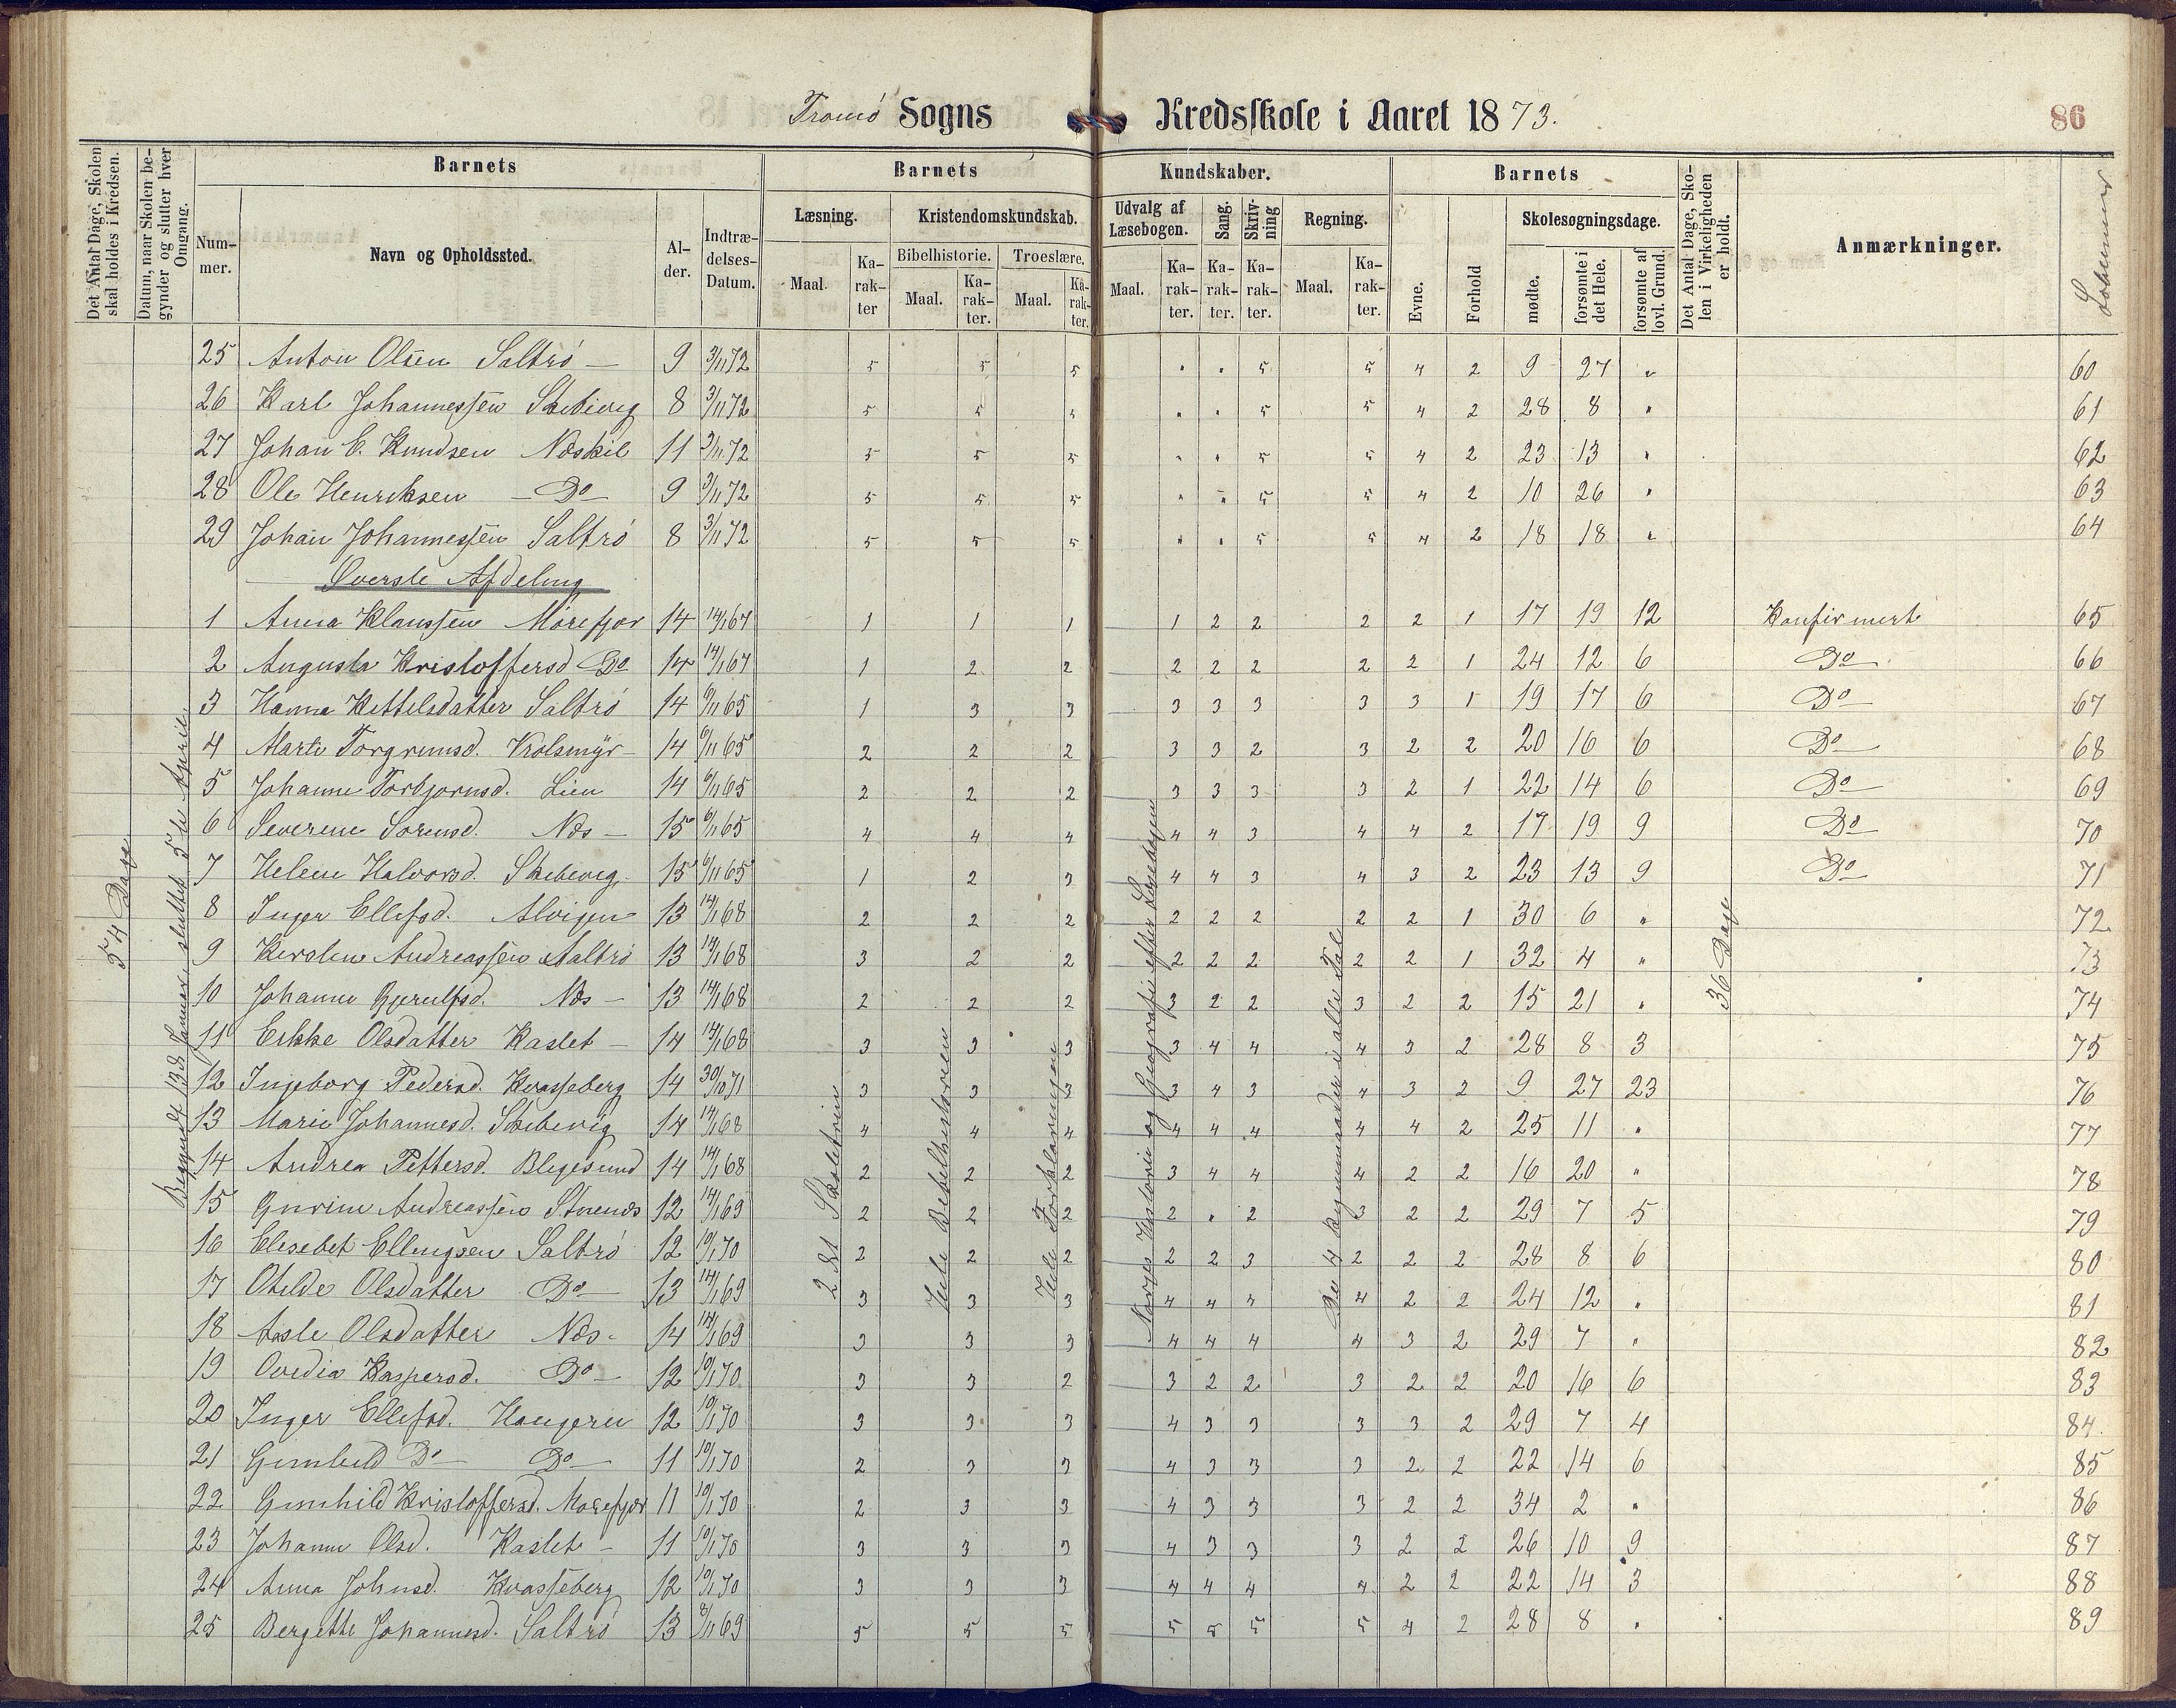 Tromö Sogns Kredsskole i Aaret 1873.
86
Det Antal Dage, Skolen skal holdes i Kredsen.
Datum, naar Skolen begynder og slutter hver Omgang.
Barnets
Barnets
Kundskaber.
Barnets
Det Antal Dage, Skolen i Virkeligheden er holdt.
Anmærkninger.
Löbenumer
Nummer.
Navn og Opholdssted.
Alder.
Indtrædelses-Datum.
Læsning.
Kristendomskundskab.
Udvalg af Læsebogen.
Sang.
Skrivning
Regning.
Evne.
Forhold
Skolesøgningsdage.
Bibelhistorie.
Troeslære.
Maal.
Karakter
Maal.
Karakter.
Maal.
Karakter.
Maal.
Karakter.
Karakter.
Karakter.
Maal.
Karakter.
mødte.
forsømte i det Hele.
forsømte af lovl. Grund.
25 Anton Olsen Saltrö — 9 3/11 72 5 5 5 " " 5 5 4 2 9 27 " 60
26 Karl Johannessen Skibevig 8 3/11 72 5 5 5 " " 5 5 4 2 28 8 " 61
27 Johan E. Knudsen Næskil 11 3/11 72 5 5 5 " " 5 5 4 2 23 13 " 62
28 Ole Henriksen — Do — 9 3/11 72 5 5 5 " " 5 5 4 2 10 26 " 63
29 Johan Johannessen Saltrö 8 3/11 72 5 5 5 " " 5 5 4 2 18 18 " 64
Øverste Afdeling
1 Anna Klaussen Mörefjær 14 14/1 67 1 1 1 1 2 2 2 2 1 17 19 12 Konfirmert 65
2 Augusta Kristoffersd Do 14 14/1 67 1 2 2 2 2 2 2 2 1 24 12 6 Do 66
3 Hanna Kettelsdatter Saltrö 14 6/11 65 1 3 3 3 3 3 3 3 1 19 17 6 Do 67
4 Marte Torgrimsd. Kolsmyr 14 6/11 65 2 2 2 3 3 2 3 2 2 20 16 6 Do 68
5 Johanne Torbjornsd. Lien 14 6/11 65 2 2 2 3 3 3 3 2 1 22 14 6 Do 69
6 Severine Sorensd. Næs — 15 6/11 65 4 4 4 4 4 3 4 4 2 17 19 9 Do 70
7 Helene Halvorsd. Skibevig 15 6/11 65 1 2 3 4 4 3 4 3 2 23 13 9 Do 71
8 Inger Ellefsd. Alvigen 13 14/1 68 2 2 2 2 2 2 2 2 1 30 6 " 72
9 Kirstine Andreassen Saltrö 13 14/1 68 3 2 2 2 2 2 2 2 1 32 4 " 73
10 Johanne Gjerulfsd. Næs — 13 14/1 68 2 2 2 3 2 2 3 2 2 15 21 " 74
11 Erkke Olsdatter Kaslet — 14 14/1 68 3 3 3 3 4 4 4 3 2 28 8 3 75
12 Ingeborg Pedersd. Kvasseberg 14 30/10 71 3 3 3 3 4 3 4 3 2 9 27 23 76
13 Marie Johannesd. Skibevig 14 14/1 68 4 4 4 4 4 4 4 4 2 25 11 " 77
14 Andrea Pettersd. Blegesund 14 14/1 68 2 2 2 3 4 4 4 2 2 16 20 " 78
15 Gurine Andreassen Stuenæs 12 14/1 69 2 2 2 2 " 2 3 2 2 29 7 5 79
16 Elesebet Ellingsen Saltrö 12 10/1 70 2 2 2 2 2 3 2 2 2 28 8 6 80
17 Otilde Olsdatter Do — 13 14/1 69 3 3 3 4 4 4 4 2 2 24 12 " 81
18 Aasle Olsdatter Næs - 14 14/1 69 3 3 3 4 4 4 4 3 2 29 7 " 82
19 Ovedia Kaspersd. Do — 12 10/1 70 3 3 2 3 2 2 3 2 2 20 16 6 83
20 Inger Ellefsd. Haugern 12 10/1 70 3 3 3 4 3 3 3 3 2 29 7 4 84
21 Gunhild Do — Do — 11 10/1 70 2 3 3 4 3 3 3 2 2 22 14 6 85
22 Gunhild Kristoffersd. Morefjær 11 10/1 70 2 3 3 4 3 3 3 2 2 34 2 " 86
23 Johanne Olsd. Kaslet — 11 10/1 70 3 3 3 4 3 3 3 2 2 26 10 9 87
24 Anna Johnsd. Kvasseberg 12 10/1 70 3 3 3 4 4 4 4 2 2 22 14 3 88
25 Bergette Johannesd. Saltrö 13 8/11 69 5 5 5 5 5 5 5 4 2 28 8 " 89
54 Dage
Begyndt 13de Januar sluttet 5te April
2det Skoletrin
Hele Bibelhistorien
Hele Forklaringen
Norges Historie og Geografi efter Læsebogen
De 4 Regningsarter i alle Tal
36 Dage